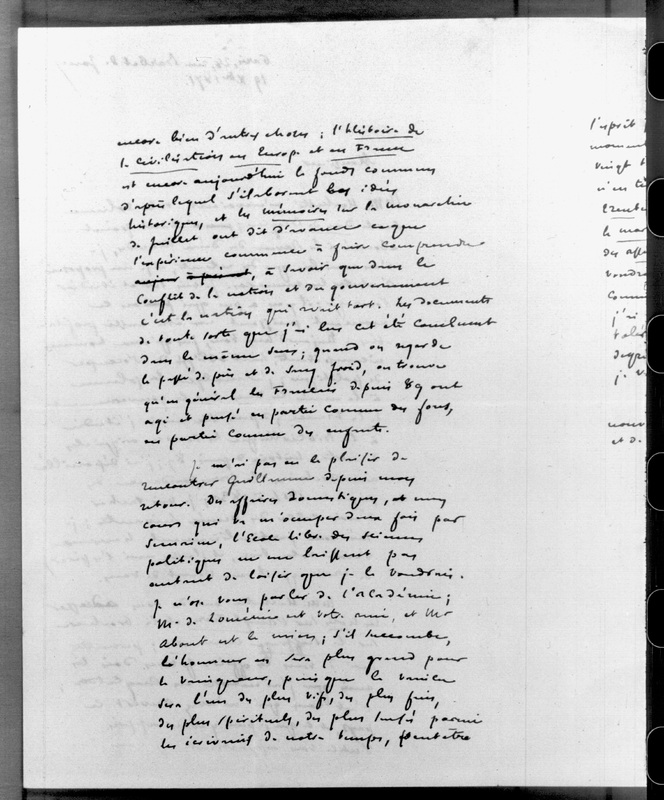 encore bien d'autres choses ; l'histoire de
la civilisation en Europe et en France
est encore aujourd'hui le fonds commun
d'après lequel s'élaborent les idées
historiques, et les mémoires sur la monarchie
de Juillet ont dit d'avance ce que
l'expérience commence à faire comprendre
à savoir que dans le
conflit de la nation et du gouvernement
c'est la nation qui avait tort. Les documents
de toute sorte que j'ai lus cet été concluent
dans le même sens ; quand on regarde
le passé de près et de sang froid, on trouve
qu'en général les Français depuis 89 ont
agi et pensé en partie comme des fous,
en partie comme des enfants.
Je n'ai pas eu le plaisir de
rencontrer Guillaume depuis mon
retour. Des affaires domestiques, et mon
cours qui va m'occuper deux fois par
semaine, l'Ecole libre des sciences
politiques ne me laissent pas
autant de loisir que je le voudrais.
Je n'ose vous parler de l'Académie ;
Mr de Loménie est votre ami, et Mr
About est le mien ; s'il succombe,
l'honneur en sera plus grand pour
le vainqueur, puisque le vaincu
sera l'un des plus vifs, des plus fins,
des plus spirituels, des plus sensés parmi
les écrivains de notre temps, peut-être
l'esprit
moment
vingt
des aff
voudra
comm
j'ai
et d